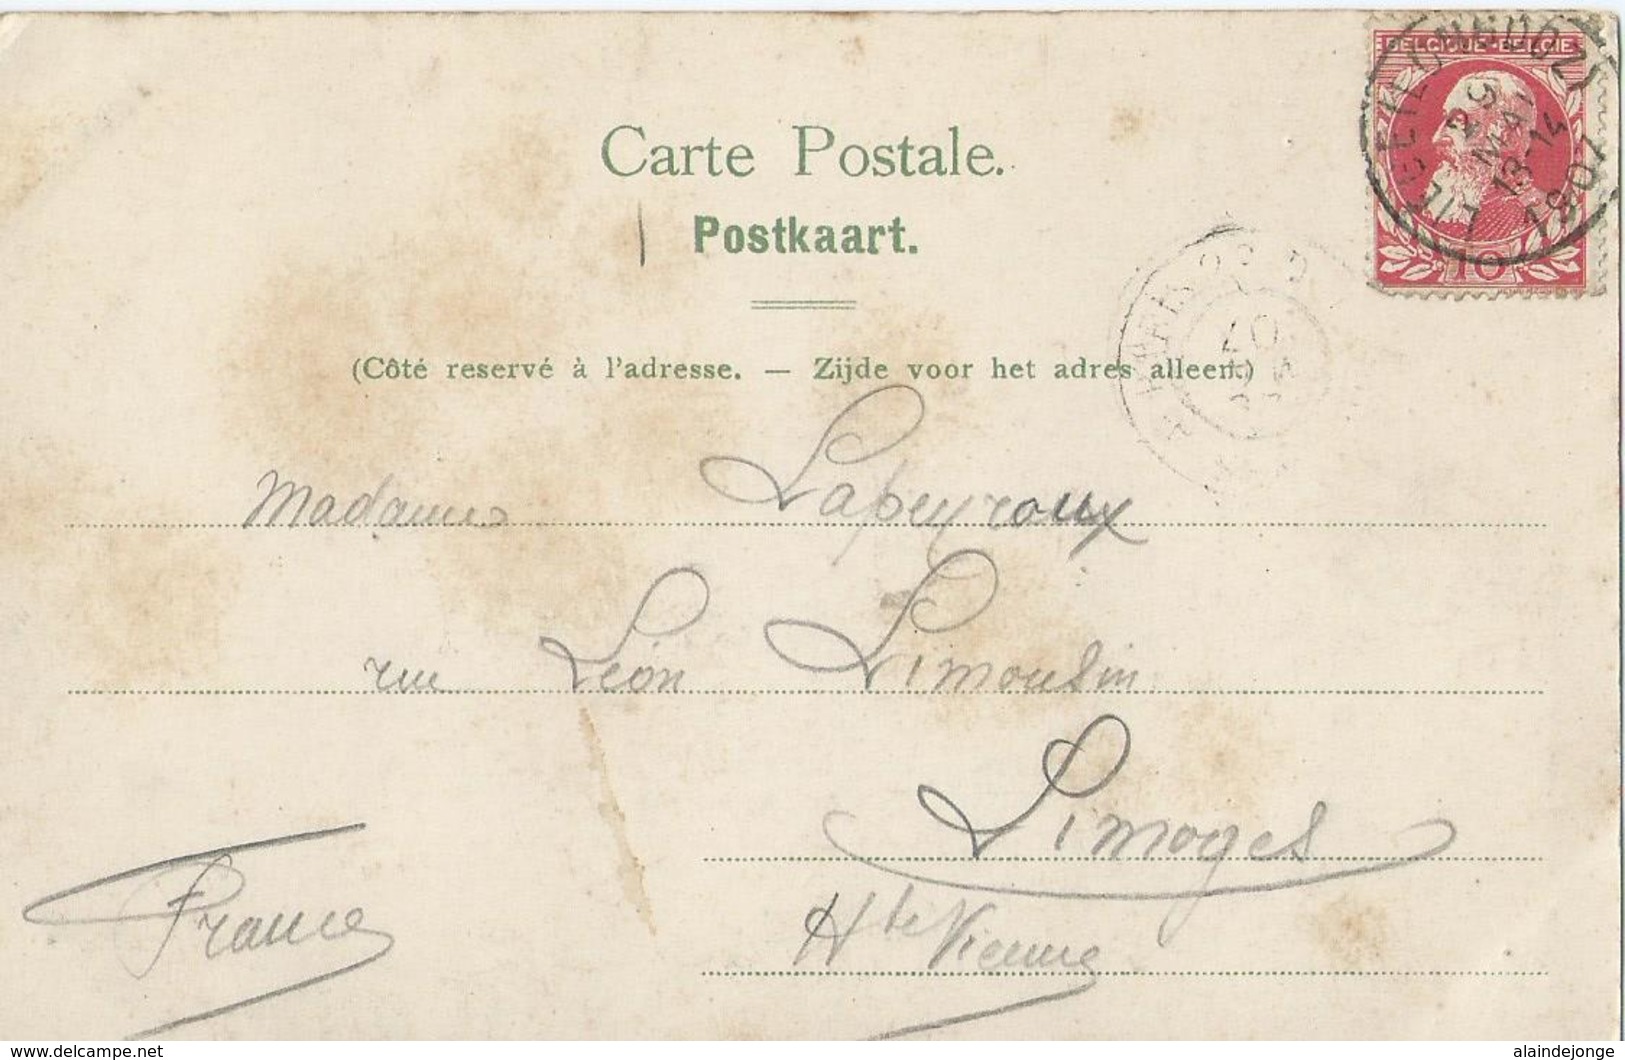 BELGIQUE-BELGIË
10
23
MAI
13-14
1907
Carte Postale.
Postkaart.
07
(Côté reservé à l'adresse. — Zijde voor het adres alleen.)
Madame Lapeyroux
rue Léon Limousin
Limoges
Hte Vienne
France
www.delcampe.net
alaindejonge